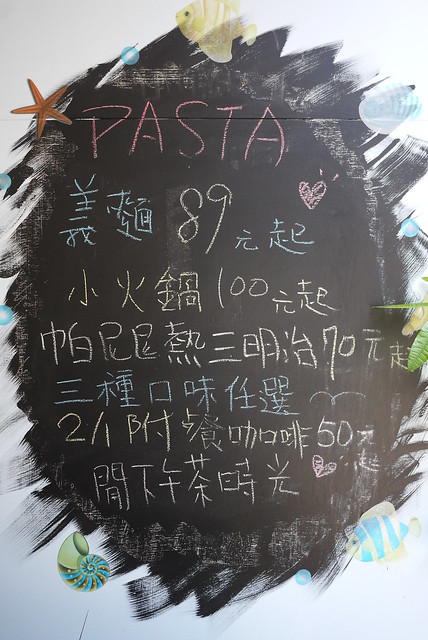 PASTA
義麵 89元起
小火鍋100元起
帕尼尼熱三明治70元起
三種口味任選
附餐咖啡50元起
閒下午茶時光